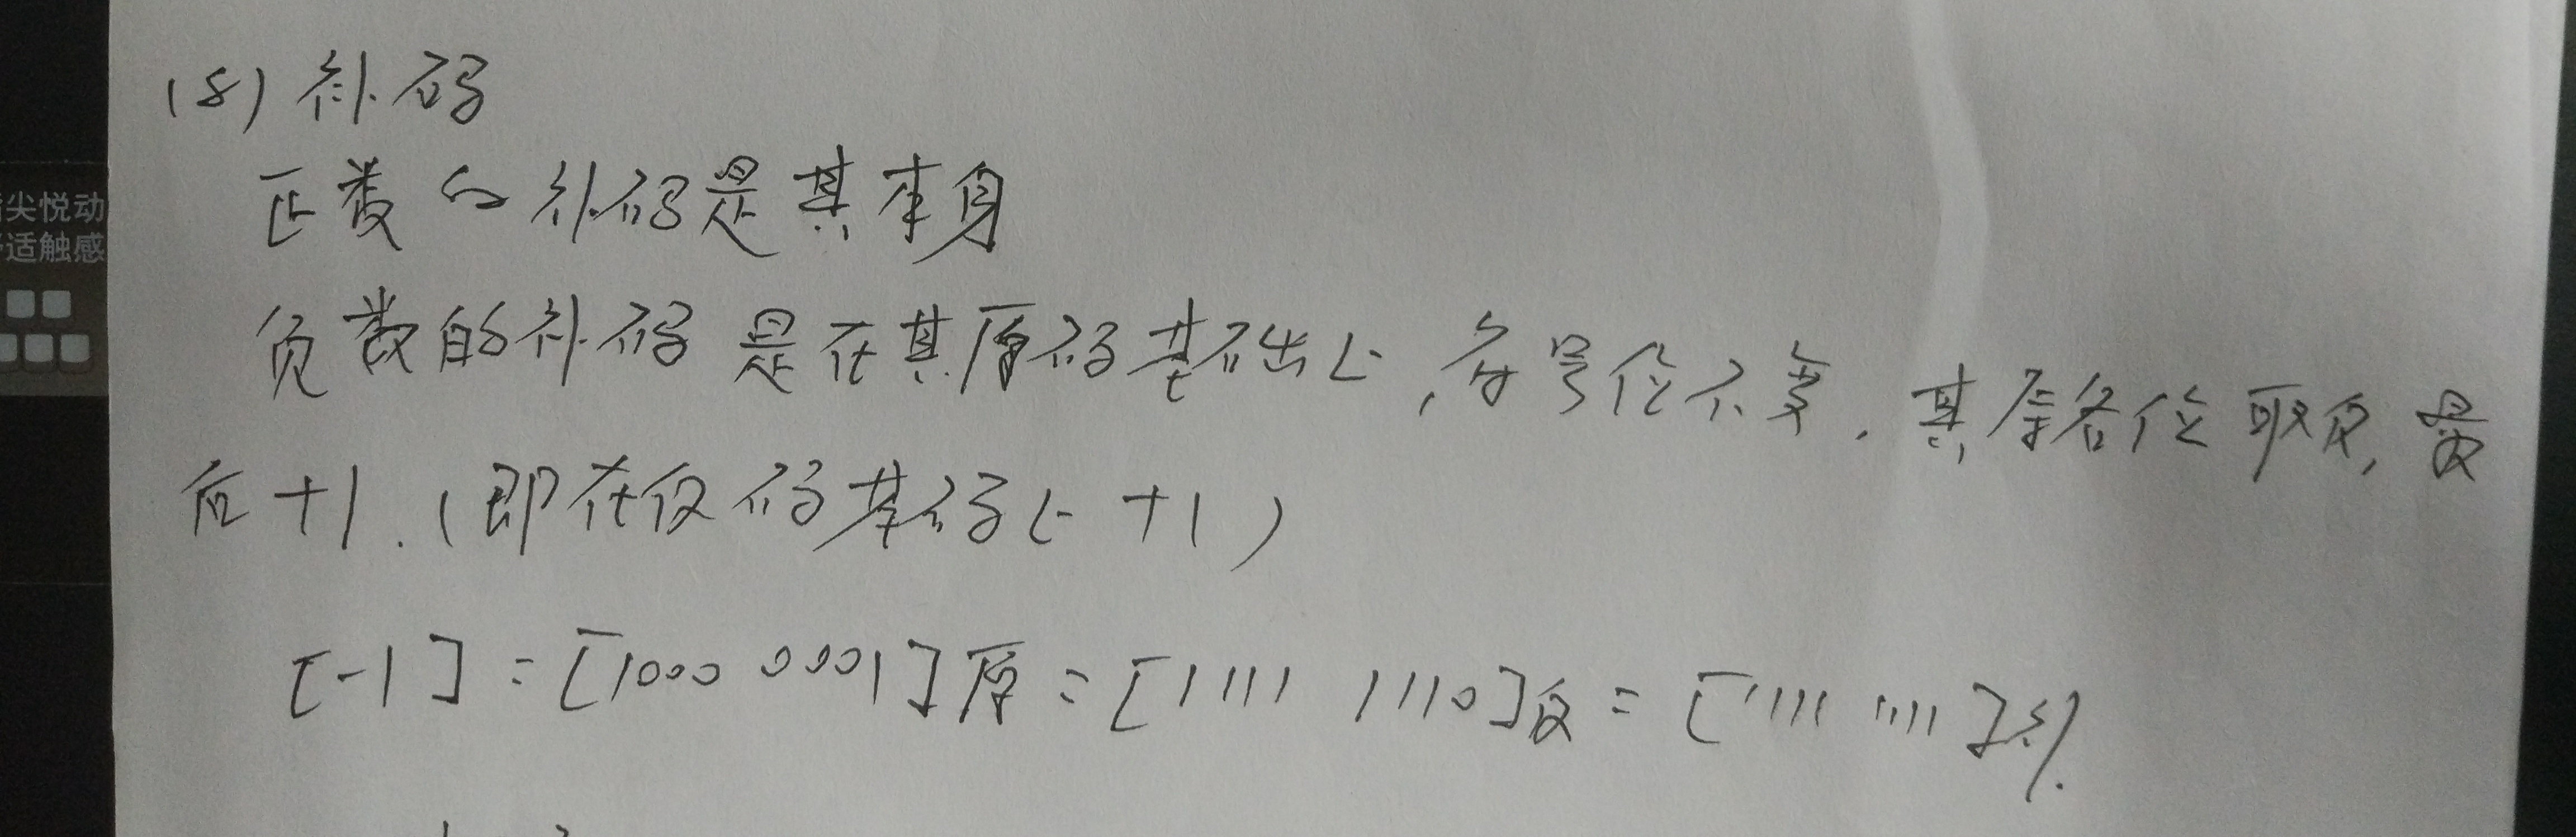 (8) 补码
正数的补码是其本身
负数的补码是在其原码基础上,符号位不变.其余各位取反,最
后+1.(即在反码基码上+1)
[-1]=[1000 0001]原=[1111 1110]反=[1111 1111]补.
尖悦动
适触感